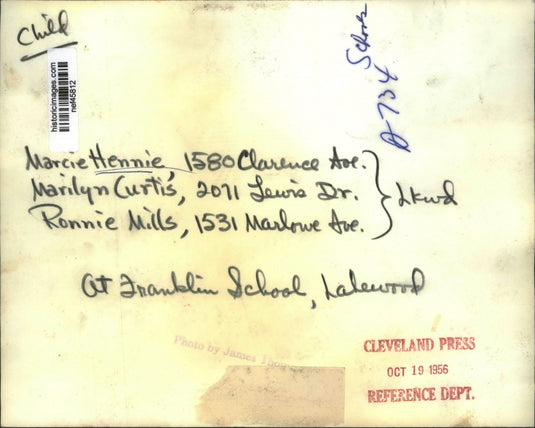 Child
historicimages.com
nef45812
Schools
A-734
Marcie Hennie, 1580 Clarence Ave.
Marilyn Curtis, 2071 Lewis Dr.
Ronnie Mills, 1531 Marlowe Ave.
Lkwd
At Franklin School, Lakewood
Photo by James
CLEVELAND PRESS
OCT 19 1956
REFERENCE DEPT.